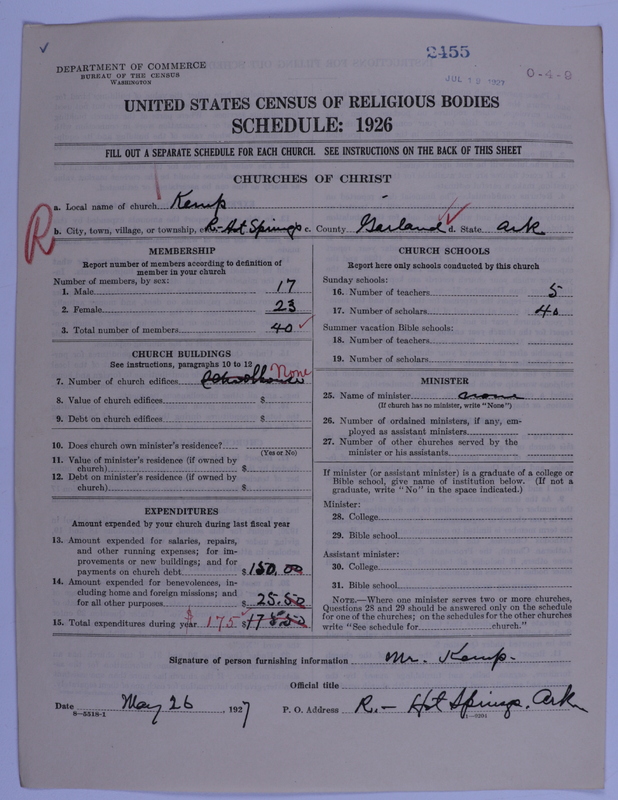 2455
DEPARTMENT OF COMMERCE
BUREAU OF THE CENSUS
WASHINGTON
JUL 1927
0-4-9
UNITED STATES CENSUS OF RELIGIOUS BODIES
SCHEDULE: 1926
FILL OUT A SEPARATE SCHEDULE FOR EACH CHURCH. SEE INSTRUCTIONS ON THE BACK OF THIS SHEET
CHURCHES OF CHRIST
a. Local name of church Kemp
R
b. City, town, village, or township, R-Hot Springs c. County Garland d. State Ark
MEMBERSHIP
Report number of members according to definition of
member in your church
Number of members, by sex:
1. Male 17
2. Female 23
3. Total number of members 40
CHURCH BUILDINGS
See instructions, paragraphs 10 to 12
7. Number of church edifices Schoolhouse None
8. Value of church edifices $
9. Debt on church edifices $
10. Does church own minister's residence?
(Yes or No)
11. Value of minister's residence (if owned by
church) $
12. Debt on minister's residence (if owned by
church) $
EXPENDITURES
Amount expended by your church during last fiscal year
13. Amount expended for salaries, repairs,
and other running expenses; for im-
provements or new buildings; and for
payments on church debt $150.00
14. Amount expended for benevolences, in-
cluding home and foreign missions; and
for all other purposes $ 25.50
15. Total expenditures during year $ 175 $175.50
CHURCH SCHOOLS
Report here only schools conducted by this church
Sunday schools:
16. Number of teachers 5
17. Number of scholars 40
Summer vacation Bible schools:
18. Number of teachers
19. Number of scholars
MINISTER
25. Name of minister none
(If church has no minister, write "None")
26. Number of ordained ministers, if any, em-
ployed as assistant ministers
27. Number of other churches served by the
minister or his assistants
If minister (or assistant minister) is a graduate of a college or
Bible school, give name of institution below. (If not a
graduate, write "No" in the space indicated.)
Minister:
28. College
29. Bible school
Assistant minister:
30. College
31. Bible school
NOTE.—Where one minister serves two or more churches,
Questions 28 and 29 should be answered only on the schedule
for one of the churches; on the schedules for the other churches
write "See schedule for church."
Signature of person furnishing information Mr. Kemp.
Official title
Date May 26, 1927 P. O. Address R.- Hot Springs, Ark
8-5518-1